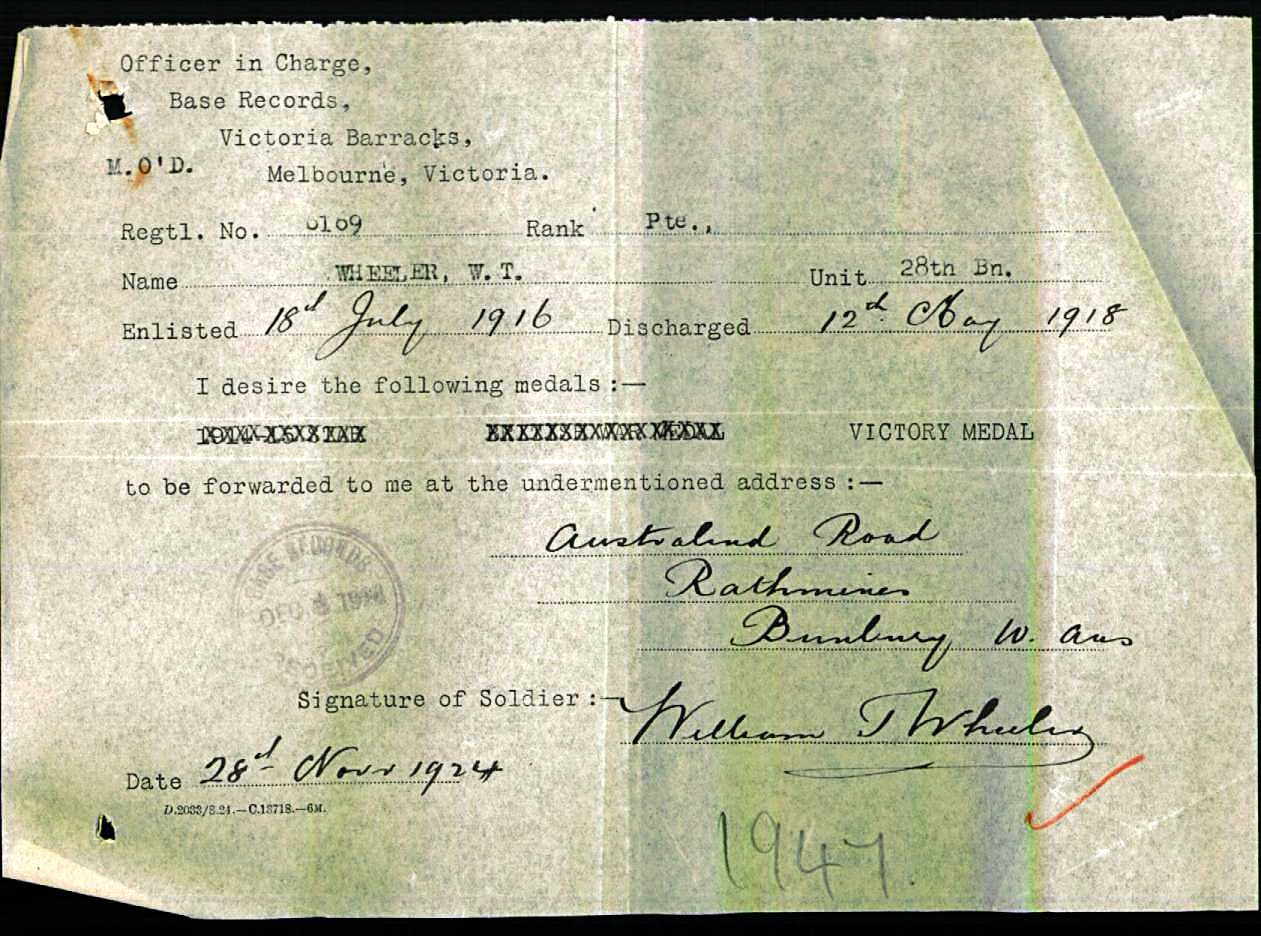 Officer in Charge,
Base Records,
Victoria Barracks,
M.O'D. Melbourne, Victoria.
Regtl. No. 6169 Rank Pte.,
Name WHEELER, W.T. Unit 28th Bn.
Enlisted 18th July 1916 Discharged 12th May 1918
I desire the following medals :—
VICTORY MEDAL
to be forwarded to me at the undermentioned address :—
Australind Road
Rathmines
Bunbury W. Aus
BASE RECORDS
DEC
Signature of Soldier :— William T Wheeler
Date 28th Novr 1924
D.2033/8.24.—C.13718.—6M.
1947.